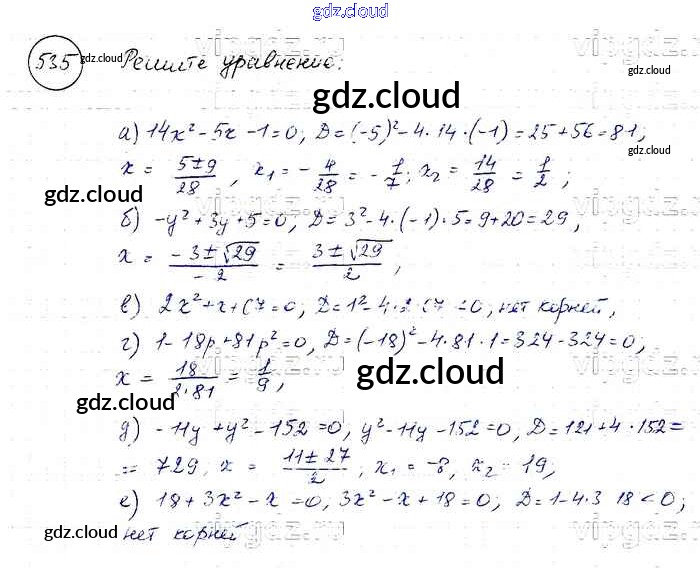 gdz.cloud
535 gdz.cloud Решите уравнение:
gdz.cloud
gdz.cloud
а) 14x² - 5x - 1 = 0, D = (-5)² - 4·14·(-1) = 25 + 56 = 81,
gdz.cloud
x = (5±9)/28, x₁ = -4/28 = -1/7; x₂ = 14/28 = 1/2;
gdz.cloud
б) -y² + 3y + 5 = 0, D = 3² - 4·(-1)·5 = 9 + 20 = 29,
x = (-3±√29)/-2 = (3±√29)/2,
в) 2x² + x + 67 = 0, D = 1² - 4·2·67 < 0, нет корней,
г) 1 - 18p + 81p² = 0, D = (-18)² - 4·81·1 = 324 - 324 = 0,
x = 18/(2·81) = 1/9,
gdz.cloud
gdz.cloud
д) -11y + y² - 152 = 0, y² - 11y - 152 = 0, D = 121 + 4·152 =
= 729, x = (11±27)/2, x₁ = -8, x₂ = 19,
е) 18 + 3x² - x = 0, 3x² - x + 18 = 0, D = 1 - 4·3·18 < 0;
нет корней
gdz.cloud
gdz.cloud